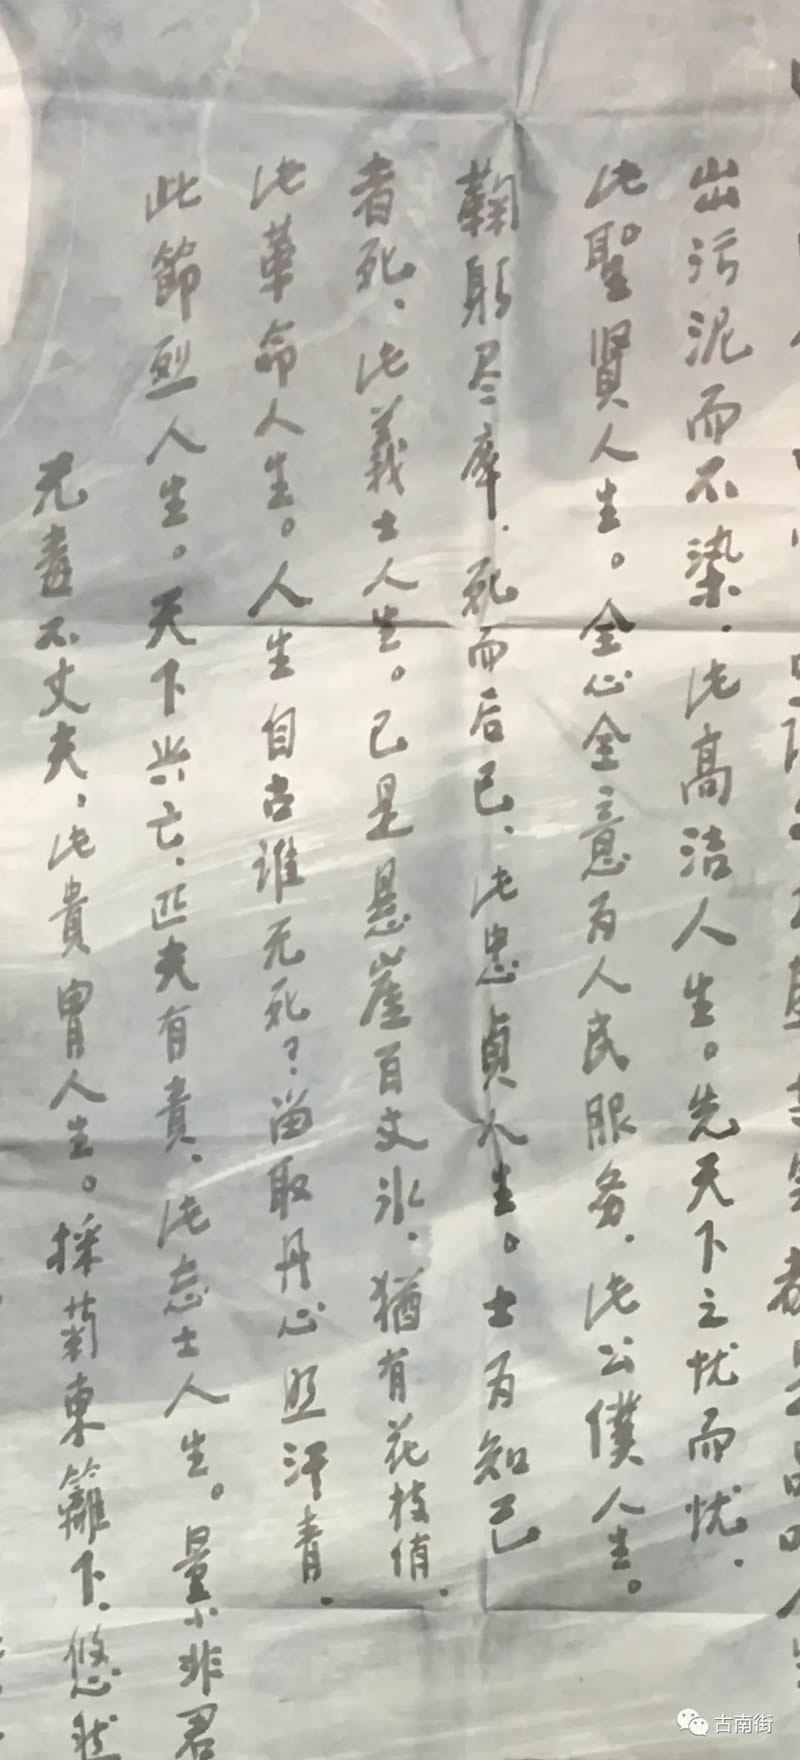 出污泥而不染，此高洁人生。先天下之忧而忧，
此聖賢人生。全心全意为人民服务，此公僕人生。
鞠躬尽瘁，死而后已，此忠貞人生。士为知己
者死，此義士人生。已是悬崖百丈冰，猶有花枝俏，
此革命人生。人生自古谁无死？留取丹心照汗青，
此節烈人生。天下兴亡，匹夫有責，此志士人生。量小非君
无毒不丈夫，此貴胄人生。採菊東籬下，悠然
古南街